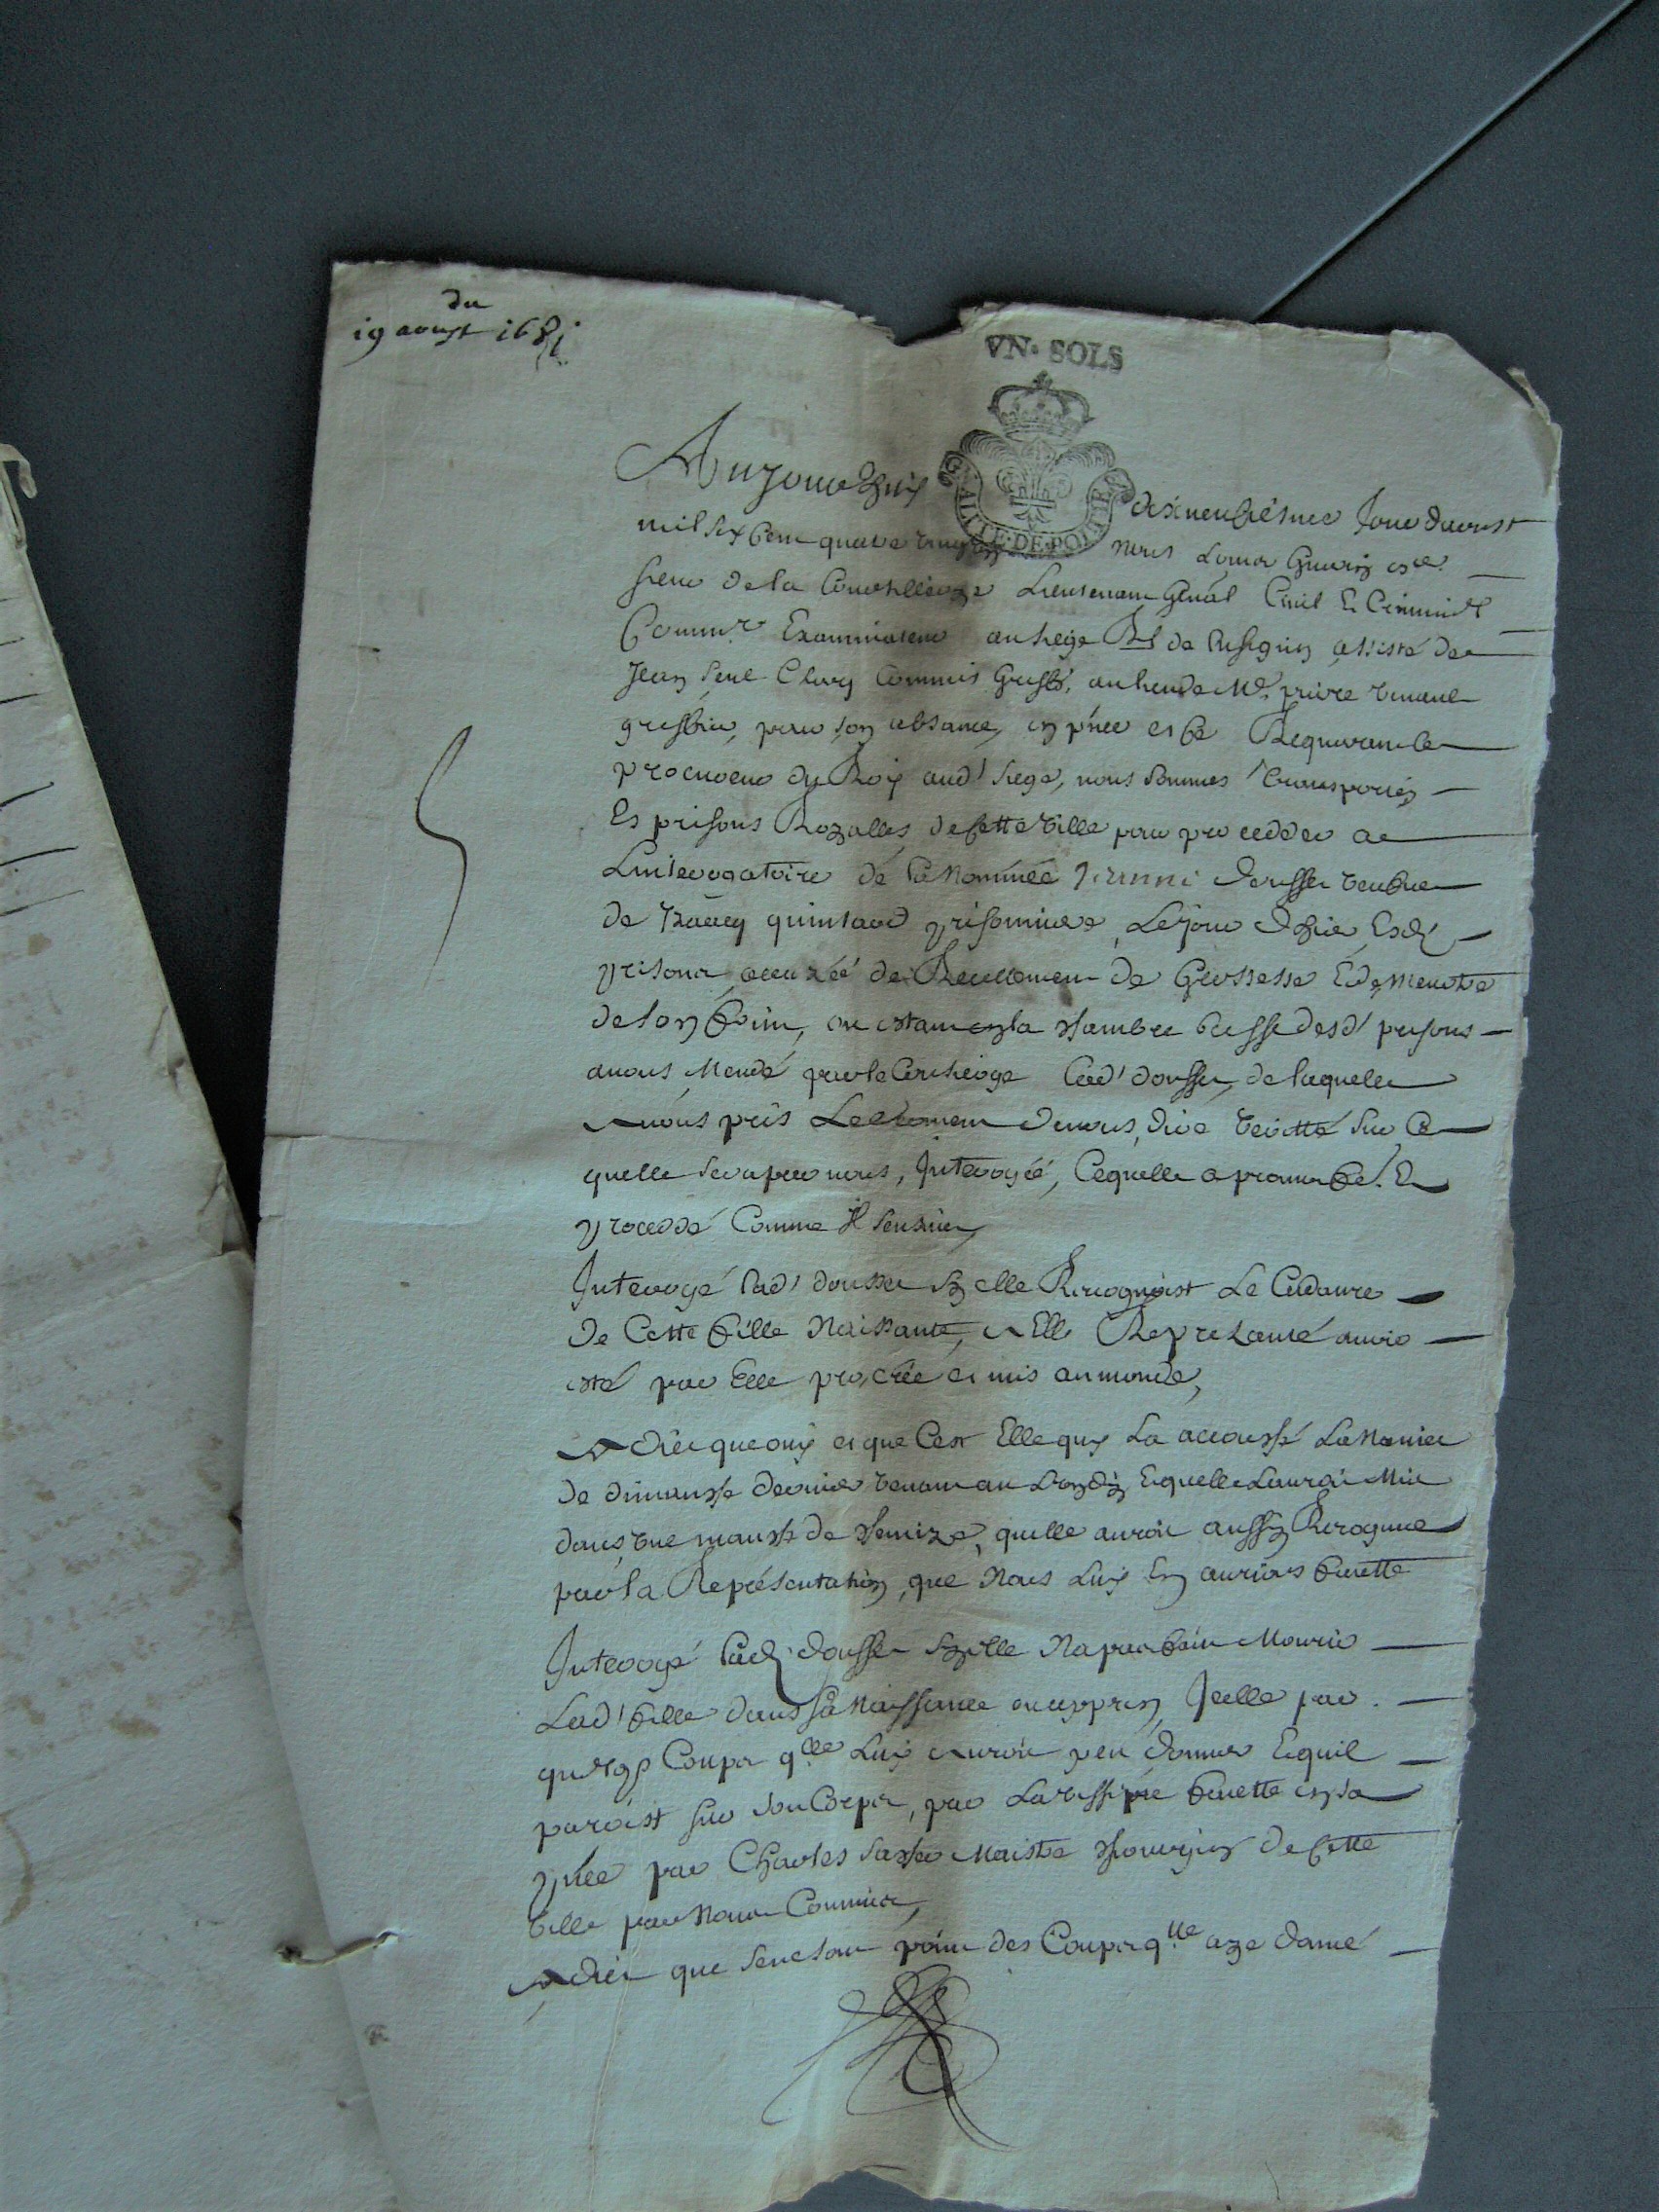 du
19 aoust 1681
VN. SOLS
GNALITE. DE. POITIE
Aujourdhuy dixneufiesme Jour daoust
mil six Cent quatre vingt nous Guerin
sieur de la Lieutenant Genal Civil & Criminel
Commre Examinateur au siege Rl de Lusignan assisté de
Jean Commis Greffe, au lieu de Me
greffier, pour son absance, en pnce et Ce Requerant le
procureur du Roy aud' siege, nous sommes transportés
Es prisons Royalles de Cette ville pour procedder a
Linterogatoire de la Nommée dousse veufve
de prisonniere, Le jour dhier Esd'
prisons accuzéé de Recellement de Grossesse & de Meurtre
de son fruit, ou estant en la chambre basse desd' prisons
avons Mendé par le Concherge lad' dousse, de laquelle
avons pris Le serment de nous dire veritté sur Ce
quelle sera par nous, Interogéé, Ce quelle a promis fe. Et
proceddé Comme Il sensuit
Interogé lad' dousse sy elle Recognoist Le Cadavre
de Cette fille Naissante, a Elle Reprezanté avoir
esté par Elle procréé et mis au monde,
A dit que ouy et que Cest Elle quy La accousché La Nanict
de dimansche dernier venant au Londy & quelle Lauroit Mis
dans une mansche de chemize, quelle auroit aussy Recognue
par la Représentation, que Nous Luy En aurions faitte
Interogé lad' dousse sy elle Na pas fait Mourir
Lad' fille dans sa Naissance ou appres Icelle par
quelqs Coups qlle Luy auroit peu donner & quil
paroist sur son Corps, par La visitte faitte en sa
pnce par Charles Maistre chirurgien de Cette
ville par Nous Commis,
A dit que se ne sont point des Coups qlle aye donné